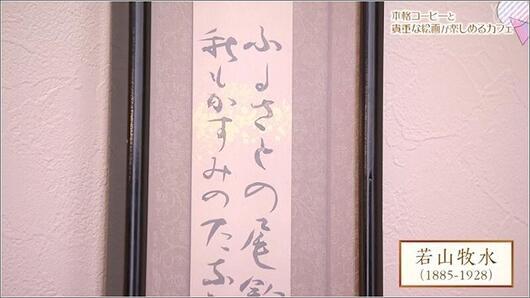 本格コーヒーと
貴重な絵画が楽しめるカフェ
ふるさとの尾鈴
秋もかすみのた
若山牧水
(1885-1928)